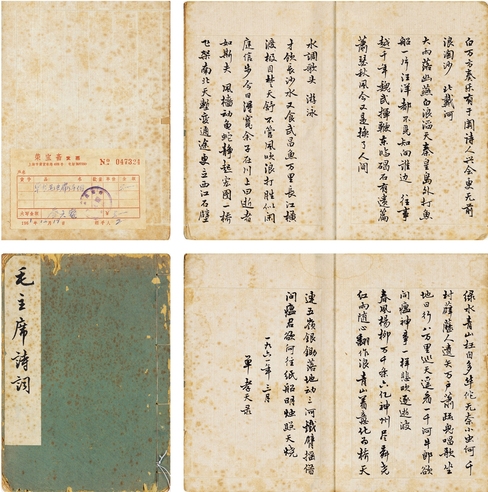 榮宝斋
№ 047321
白万方奏乐有于阗詩人兴会更无前
浪淘沙 北戴河
大雨落幽燕白浪滔天秦皇島外打魚
船一片汪洋都不見知向誰边 往事
越千年魏武揮鞭东临碣石有遺篇
蕭瑟秋風今又是换了人间
水调歌头 游泳
才饮長沙水又食武昌魚万里長江横
渡极目楚天舒不管風吹浪打胜似闲
庭信步今日得寬余子在川上曰逝者
如斯夫 風樯动龟蛇静起宏图一桥
飞架南北天塹变通途更立西江石壁
毛主席詩詞
绿水青山枉自多华佗无奈小虫何千
村薜荔人遺矢万户蕭疏鬼唱歌坐
地日行八万里巡天遥看一千河牛郎欲
问瘟神事一样悲欢逐逝波
春風楊柳万千条六亿神州尽舜尧
红雨随心翻作浪青山着意化为桥天
連五嶺銀鋤落地动三河鐵臂摇借
问瘟君欲何往纸船明烛照天烧
一九六一年三月
单孝天录